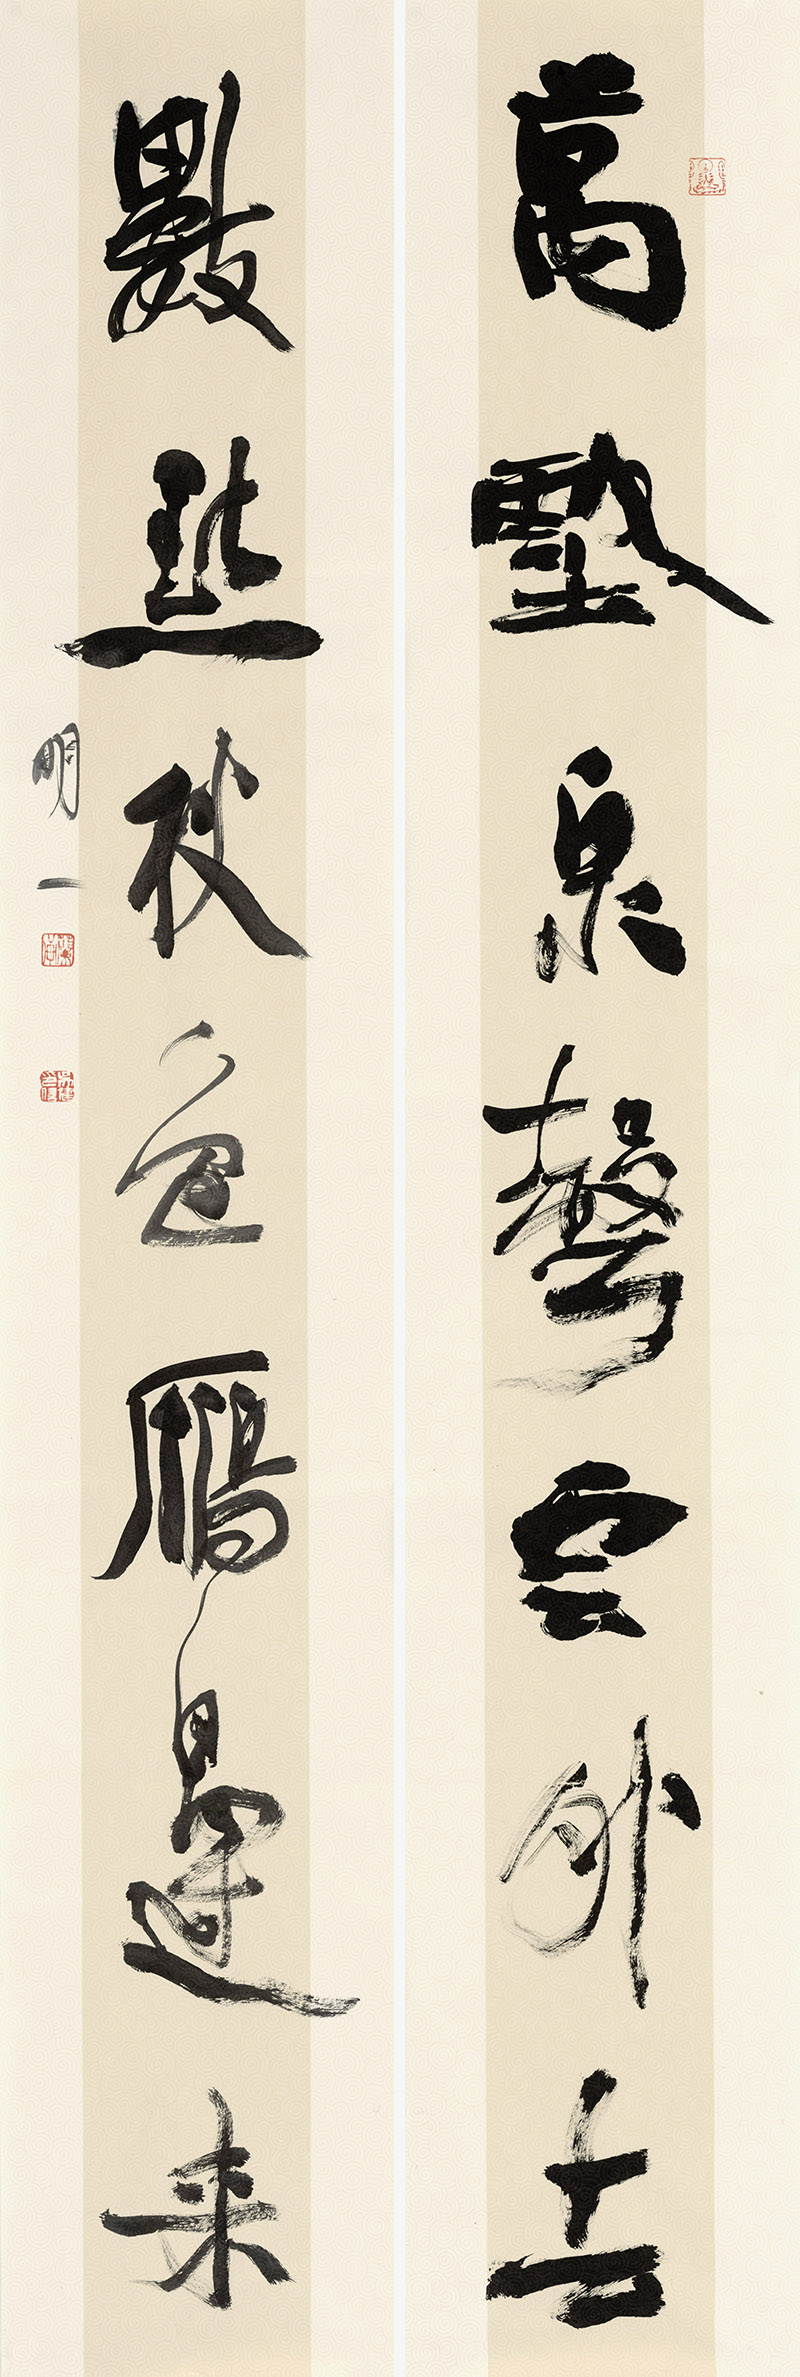 萬壑泉聲雲外去
數點秋色雁邊來
明一